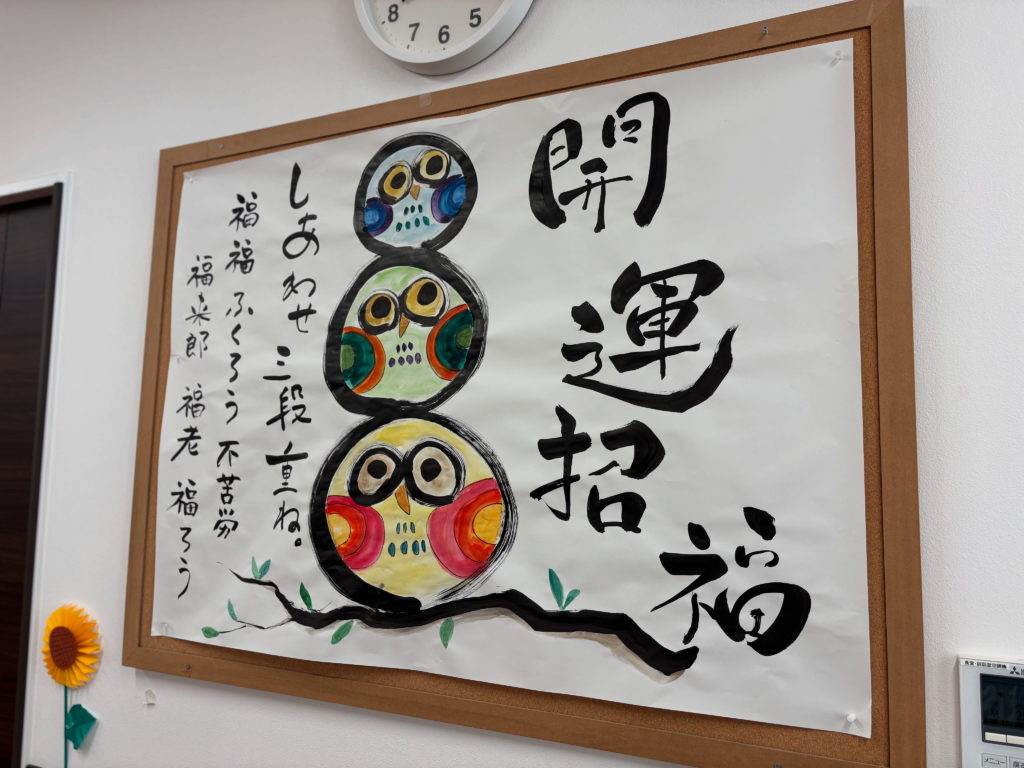 開運招福
しあわせ 三段重ね。
福福ふくろう 不苦労
福来郎 福老 福ろう
8 7 6 5
メニュー